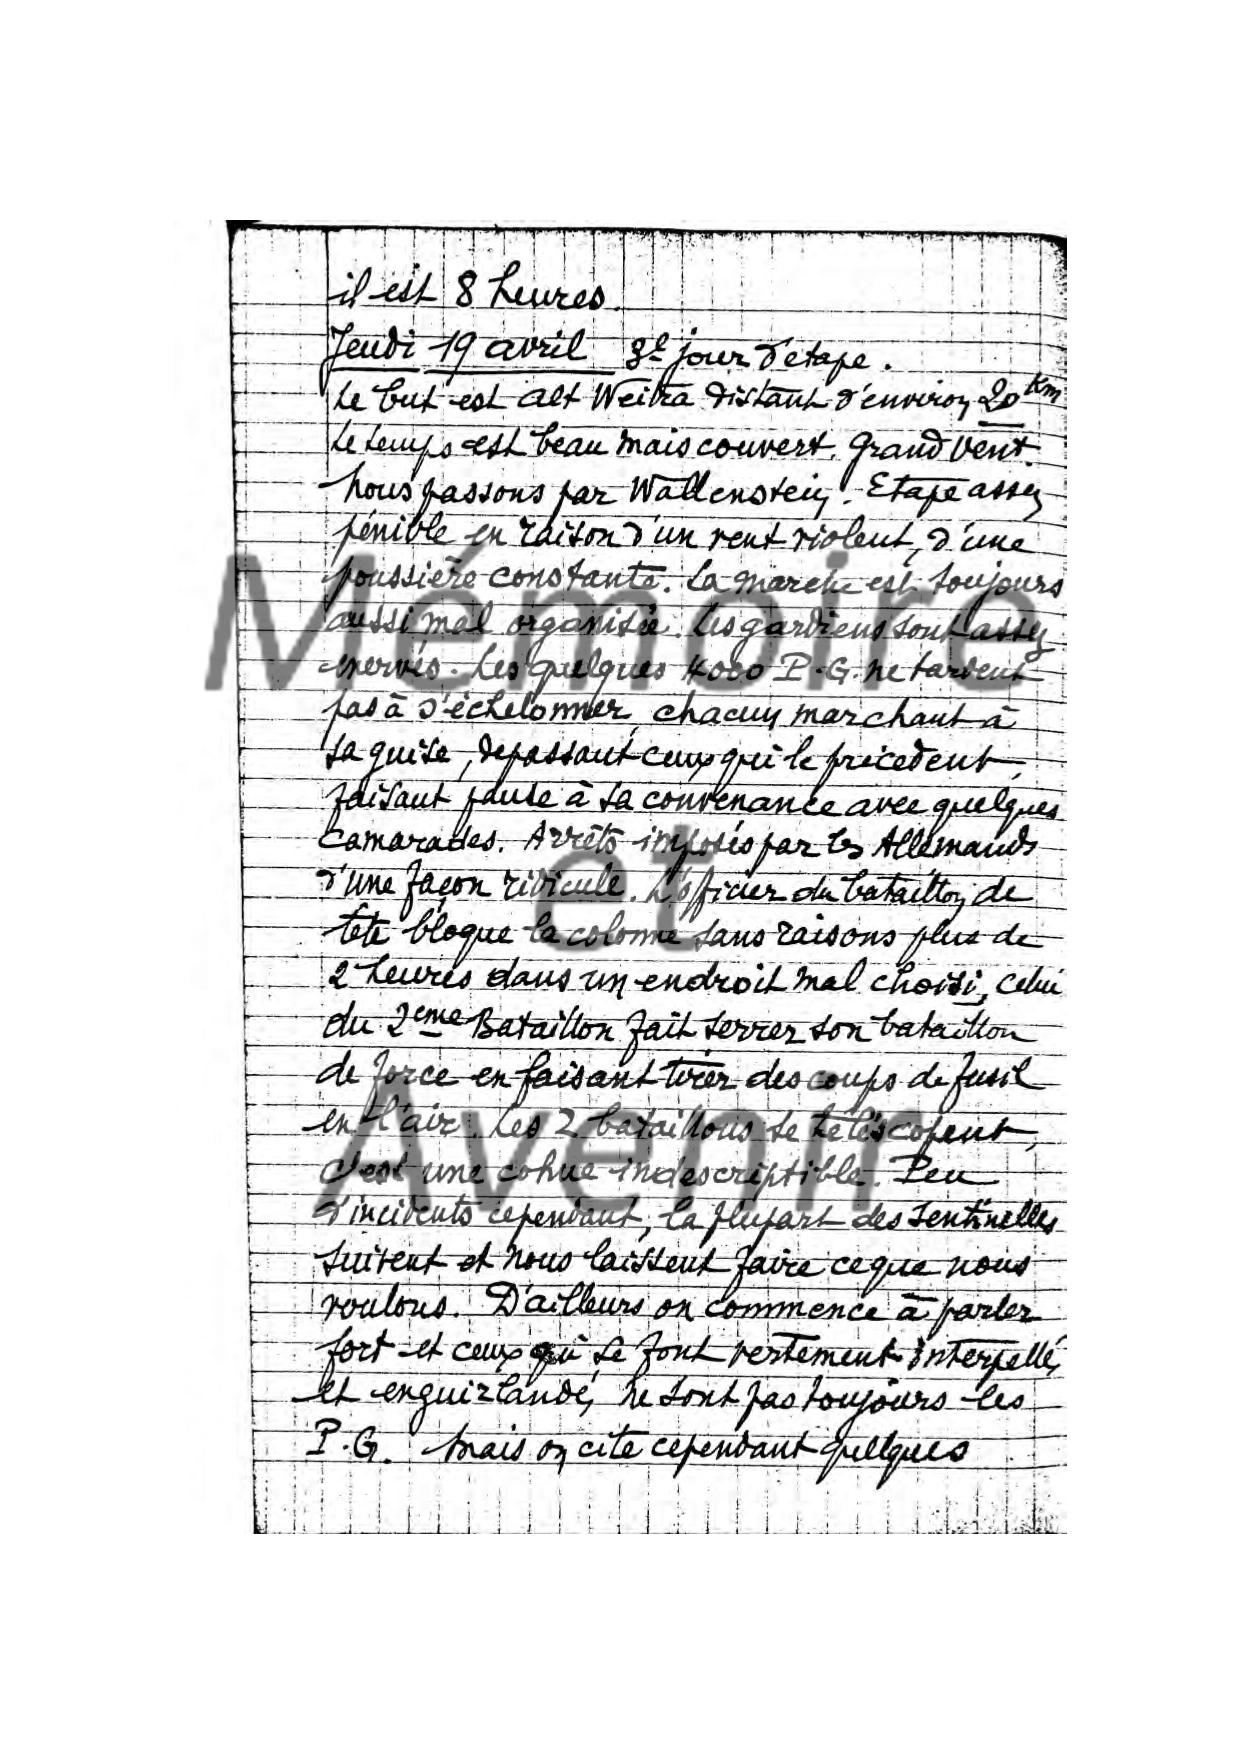 il est 8 heures.
Jeudi 19 avril 3e jour d'étape.
Le but est Alt Weitra distant d'environ 20 Km
Le temps est beau mais couvert. Grand vent.
Nous passons par Wallenstein. Etape assez
pénible en raison d'un vent violent, d'une
poussière constante. La marche est toujours
aussi mal organisée. Les gardiens sont assez
énervés. Les quelques 4000 P.G. ne tardent
pas à s'échelonner, chacun marchant à
sa guise, depassant ceux qui le précedent,
faisant pause à sa convenance avec quelques
camarades. Arrêts imposés par les Allemands
d'une façon ridicule. L'officier du bataillon de
tête bloque la colonne sans raisons plus de
2 heures dans un endroit mal choisi, celui
du 2eme Bataillon fait serrer son bataillon
de force en faisant tirer des coups de fusil
en l'air. Les 2 bataillons se téléscopent,
c'est une cohue indescriptible. Peu
d'incidents cependant, la plupart des sentinelles
suivent et nous laissent faire ce que nous
voulons. D'ailleurs on commence à parler
fort et ceux qui se font vertement interpellés
et enguirlandés ne sont pas toujours les
P.G. Mais on cite cependant quelques
Mémoire
et
Avenir